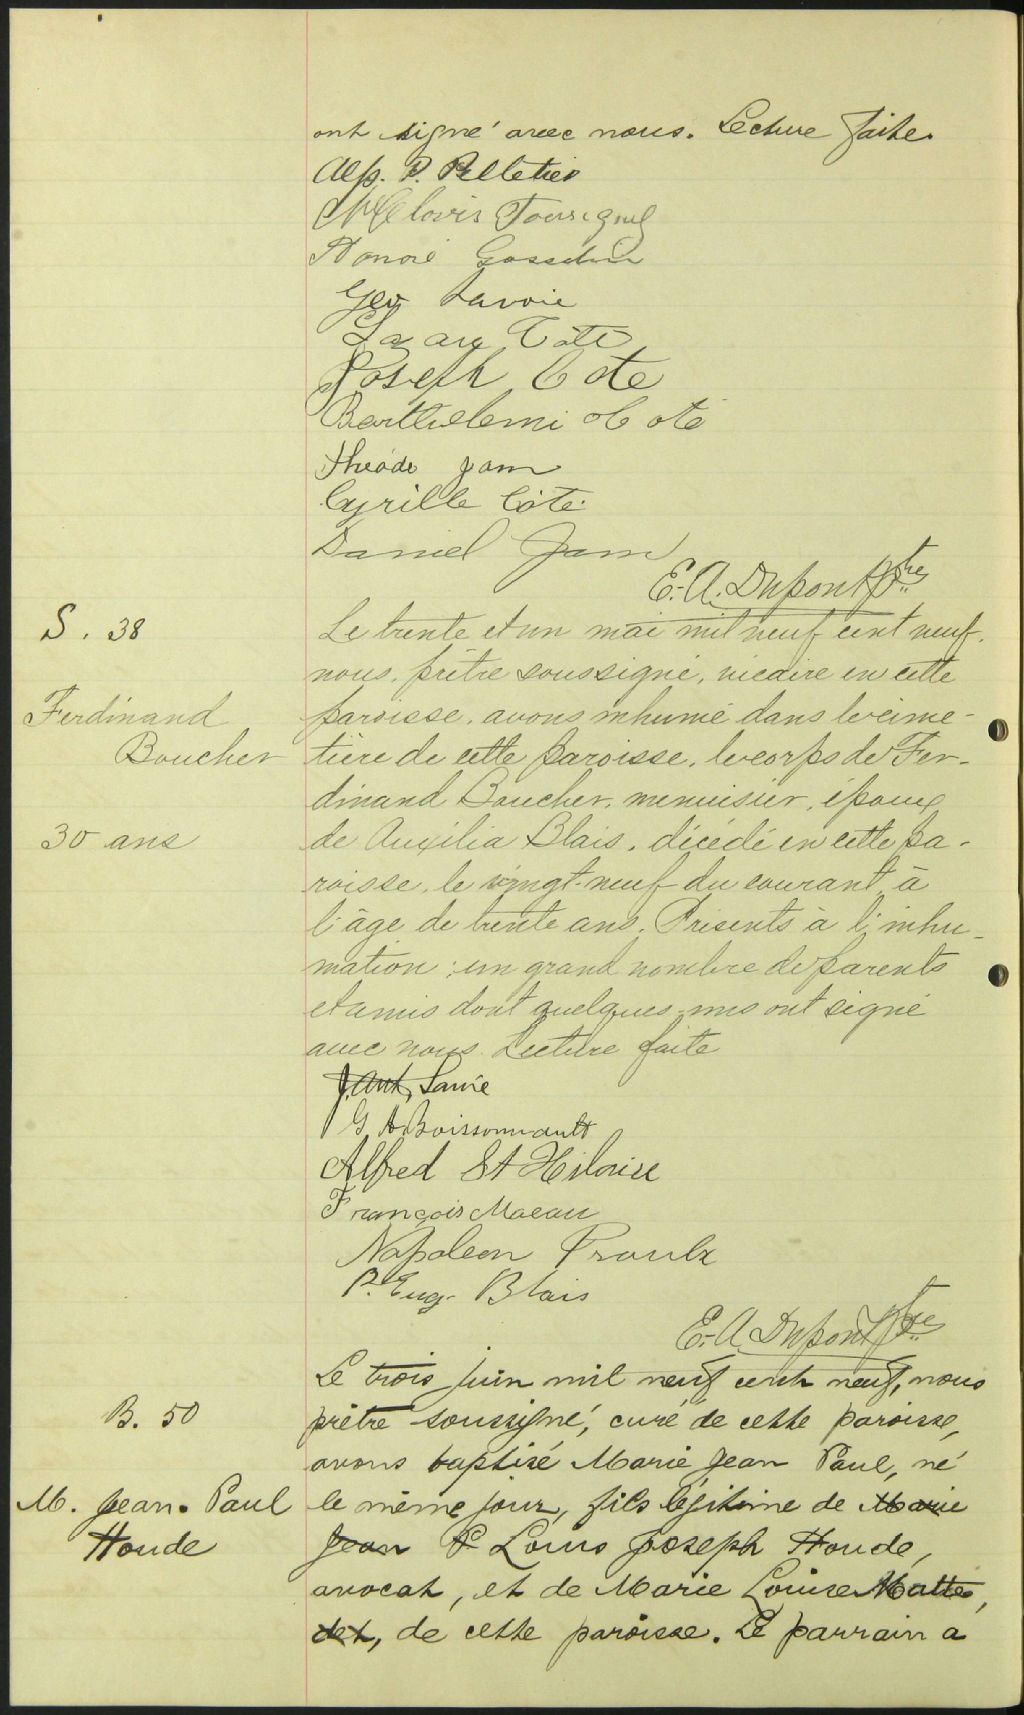 ont signé avec nous. Lecture faite.
Alp. P. Pelletier
Clovis Tourigny
Honoré Gosselin
Geo Lavoie
Lazare Côté
Joseph Cote
Barthelemi Coté
théode Jam
Cyrille Côté
Daniel Jam
E.-A. Dupont Ptre
S. 38
Le trente et un mai mil neuf cent neuf,
nous, prêtre soussigné, vicaire en cette
Ferdinand
paroisse, avons inhumé dans le cime-
Boucher
tière de cette paroisse, le corps de Fer-
dinand Boucher, menuisier, époux
30 ans
de Auxilia Blais, décédé en cette pa-
roisse, le vingt-neuf du courant, à
l'âge de trente ans. Présents à l'inhu-
mation : un grand nombre de parents
et amis dont quelques-uns ont signé
avec nous. Lecture faite
J. Ant,
G A Boissonnault
Alfred St Hilaire
François
Napoleon Proulx
P. Eug. Blais
E.-A. Dupont Ptre
Le trois juin mil neuf cent neuf, nous
B. 50
prêtre soussigné, curé de cette paroisse,
avons baptisé Marie Jean Paul, né
M. Jean. Paul
le même jour, fils légitime de Marie
Houde
Jean P. Louis Joseph Houde,
avocat, et de Marie Louise Matte,
det, de cette paroisse. Le parrain a